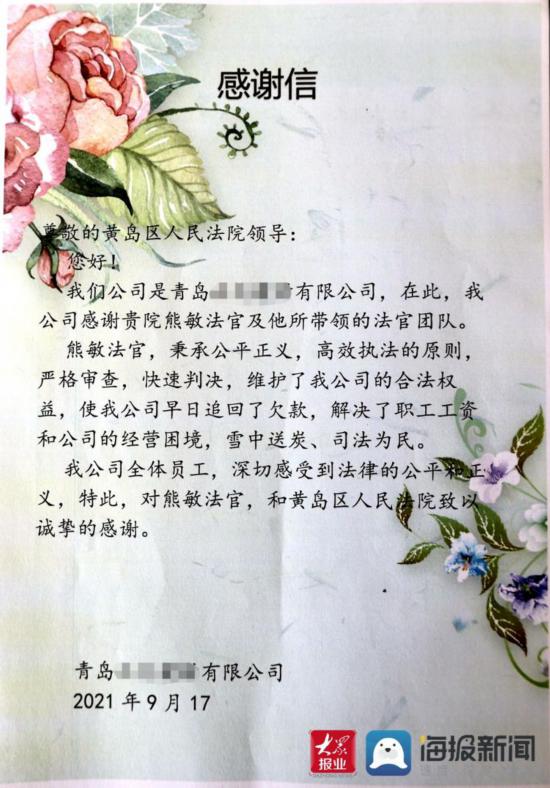 感谢信
尊敬的黄岛区人民法院领导：
您好！
我们公司是青岛有限公司，在此，我
公司感谢贵院熊敏法官及他所带领的法官团队。
熊敏法官，秉承公平正义，高效执法的原则，
严格审查，快速判决，维护了我公司的合法权
益，使我公司早日追回了欠款，解决了职工工资
和公司的经营困境，雪中送炭、司法为民。
我公司全体员工，深切感受到法律的公平和正
义，特此，对熊敏法官，和黄岛区人民法院致以
诚挚的感谢。
青岛有限公司
2021 年 9 月 17
大众报业
DAZHONG NEWS
海报新闻